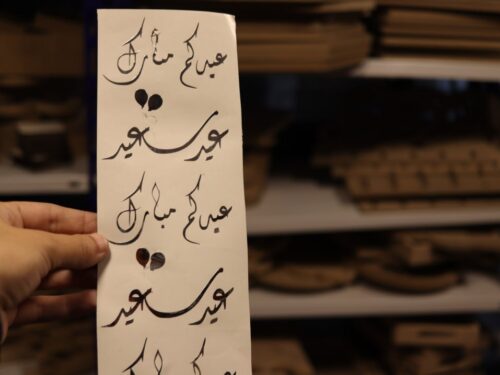 عيدكم مبارك
عيد سعيد
عيدكم مبارك
عيد سعيد